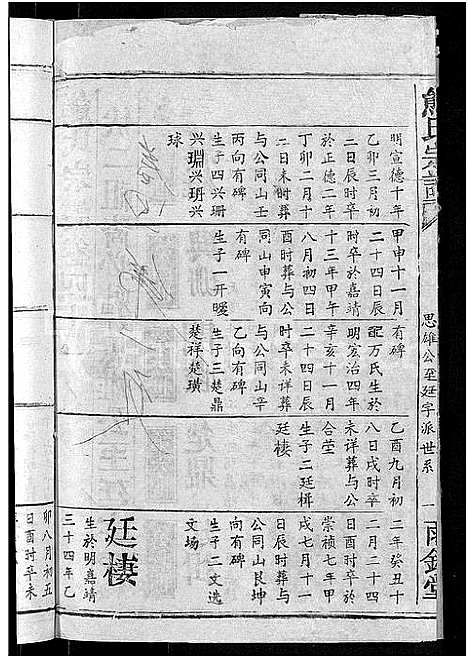 熊氏宗譜
思雄公至廷字派世系
一
明宣德十年
乙卯三月初
二日辰时卒
於正德二年
丁卯二月十
二日未时葬
与公同山壬
丙向有碑
生子四兴珊
兴㻝兴玥兴
球
甲申十一月
二十四日辰
时卒於嘉靖
十三年甲午
八月初四日
酉时葬与公
同山申寅向
有碑
生子一开暖
有碑
配万氏生於
明宏治四年
辛亥十一月
二十四日辰
时卒未详葬
与公同山辛
乙向有碑
生子三楚鼎
楚祥楚璜
乙酉九月初
八日戌时卒
未详葬与公
合茔
生子二廷楫
廷楼
二年癸丑十
二月二十四
日酉时卒於
崇祯七年甲
戌七月十一
日辰时葬与
公同山艮坤
向有碑
生子二文选
文场
廷楼
生於明嘉靖
三十四年乙
卯八月初五
日酉时卒未